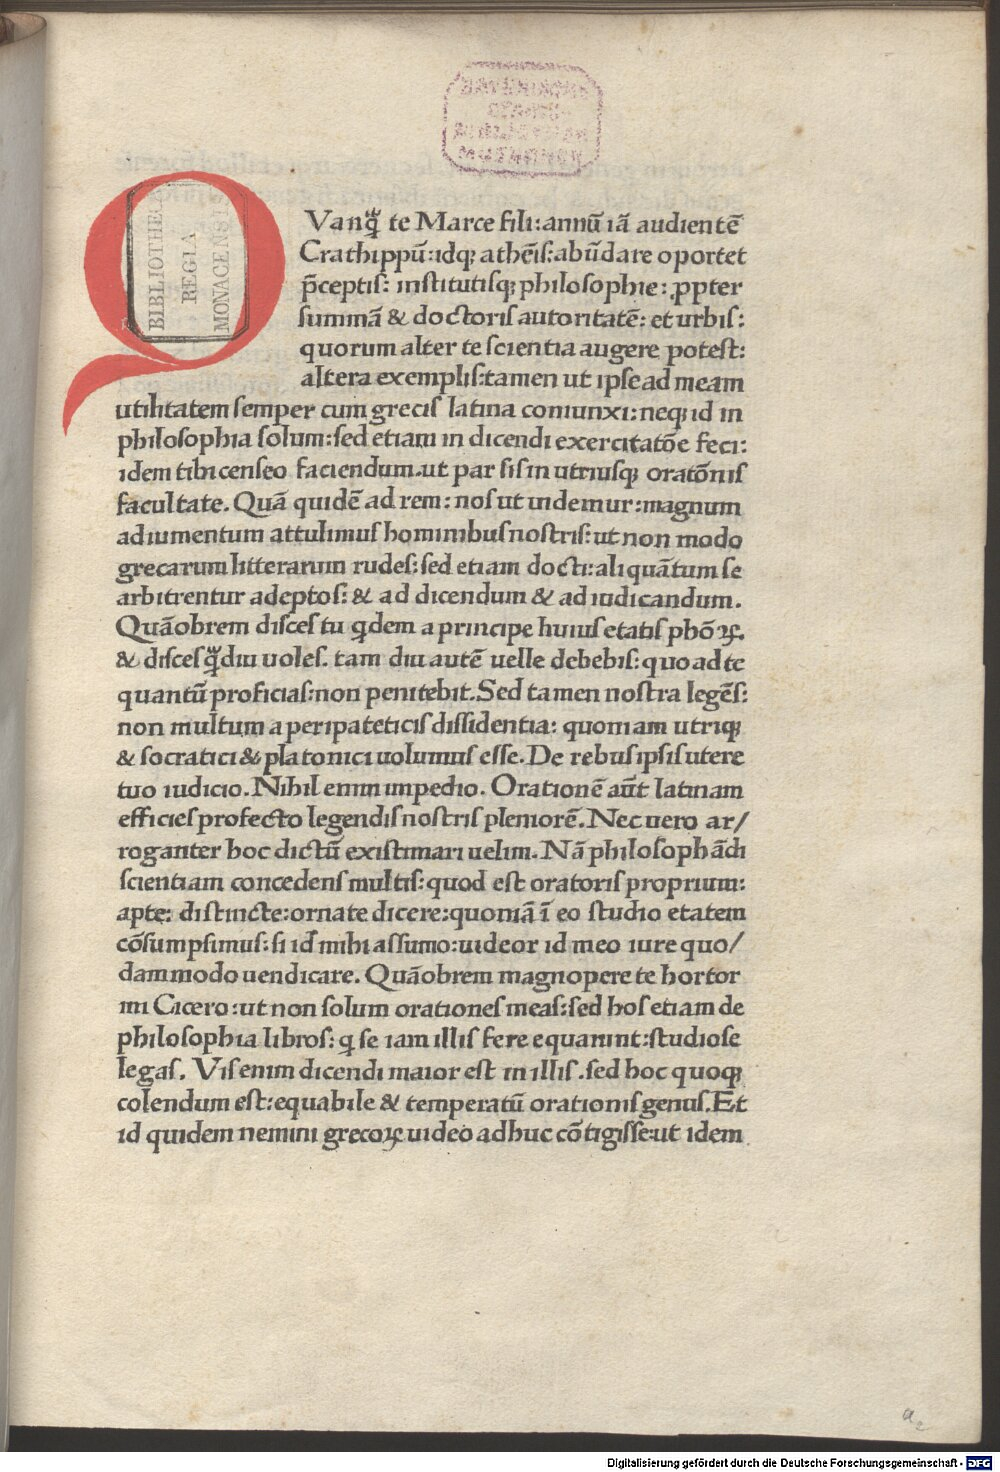 BIBLIOTHECA
REGIA
MONACENSIS
QVanq̃ te Marce fili:annũ iã audientẽ
Crathippũ:idq; athẽis:abũdare oportet
p̃ceptis: institutisq; philosophie: ꝓpter
summã & doctoris autoritatẽ: et urbis:
quorum alter te scientia augere potest:
altera exemplis:tamen ut ipse ad meam
utilitatem semper cum grecis latina coniunxi:neq; id in
philosophia solum:sed etiam in dicendi exercitatõe feci:
idem tibi censeo faciendum.ut par sis in utriusq; oratõnis
facultate. Quã quidẽ ad rem: nos ut uidemur:magnum
adiumentum attulimus hominibus nostris:ut non modo
grecarum litterarum rudes:sed etiam docti:aliquãtum se
arbitrentur adeptos: & ad dicendum & ad iudicandum.
Quãobrem disces tu qdem a principe huius etatis phõꝝ.
& disces q̃diu uoles. tam diu autẽ uelle debebis:quo ad te
quantũ proficias:non penitebit.Sed tamen nostra legẽs:
non multum a peripateticis dissidentia: quoniam utriq;
& socratici & platonici uolumus esse.De rebus ipsis utere
tuo iudicio.Nihil enim impedio. Orationẽ aũt latinam
efficies profecto legendis nostris pleniorẽ.Nec uero ar/
roganter hoc dictũ existimari uelim.Nã philosophãdi
scientiam concedens multis:quod est oratoris proprium:
apte: distincte:ornate dicere:quoniã ĩ eo studio etatem
cõsumpsimus:si id mihi assumo:uideor id meo iure quo/
dammodo uendicare. Quãobrem magnopere te hortor
mi Cicero:ut non solum orationes meas:sed hos etiam de
philosophia libros: q se iam illis fere equarint:studiose
legas. Vis enim dicendi maior est in illis.sed hoc quoq;
colendum est:equabile & temperatũ orationis genus.Et
id quidem nemini grecoꝝ uideo adhuc cõtigisse:ut idem
a2
Digitalisierung gefördert durch die Deutsche Forschungsgemeinschaft - DFG